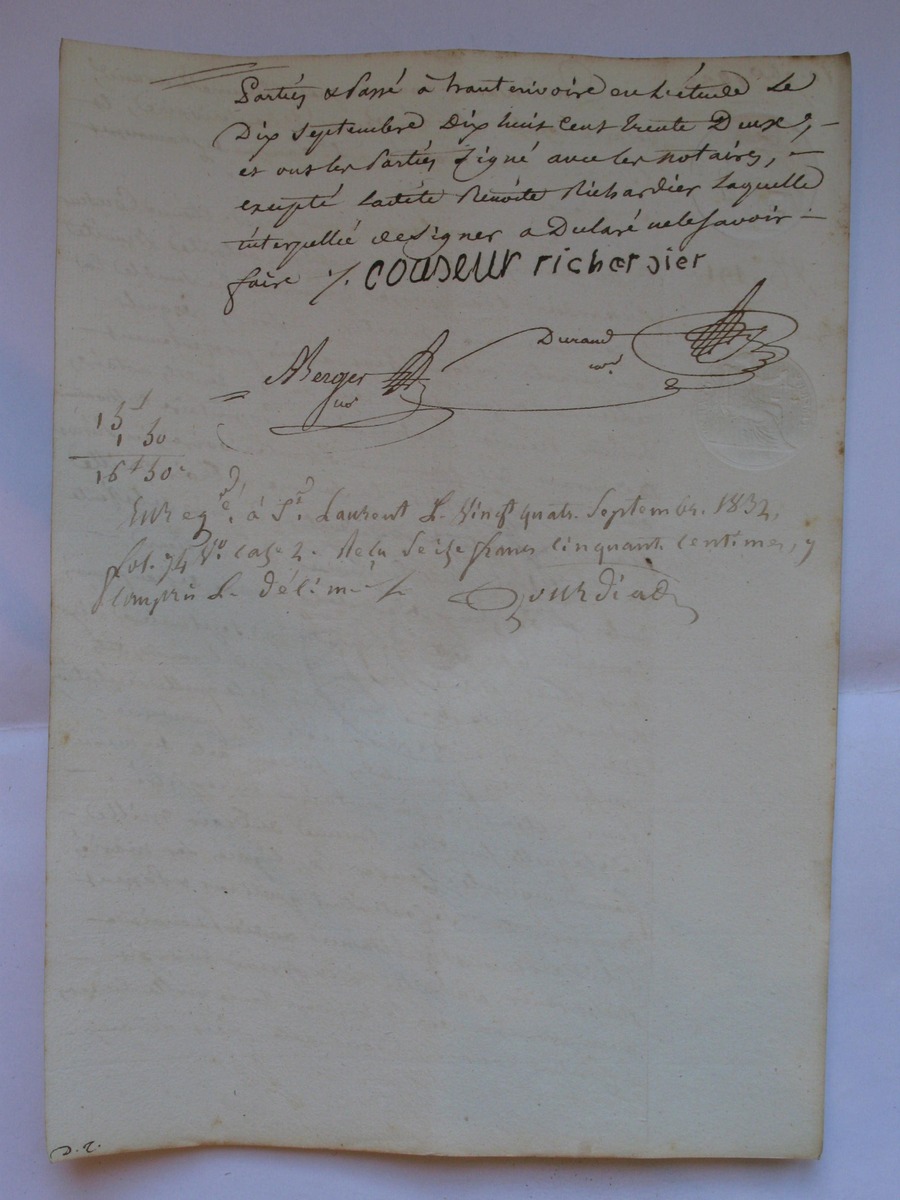 Parties & Passé à hauterivoire en L'étude Le
Dix Septembre Dix huit Cent trente Deux,
et ont les Parties Signé avec les notaires,
excepté Ladite Benoite Richardier Laquelle
interpellée de Signer a Déclaré ne le Savoir
faire ./.
couseur richardier
Durand
ABerger
no.
15f
1 50
16f 50c
Enregé. à St. Laurent Le Vingt quatre Septembre 1832,
fol. 74 Vo. case 2. Reçu Seize francs Cinquante Centimes, y
Compris Le Décime
Gourdiad
D. R.